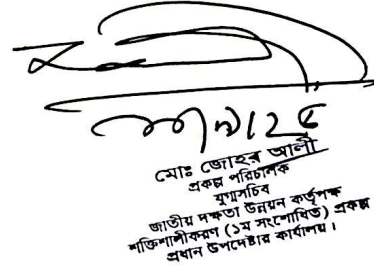 মোঃ জোহর আলী
প্রকল্প পরিচালক
যুগ্মসচিব
জাতীয় দক্ষতা উন্নয়ন কর্তৃপক্ষ
শক্তিশালীকরণ (১ম সংশোধিত) প্রকল্প
প্রধান উপদেষ্টার কার্যালয়।